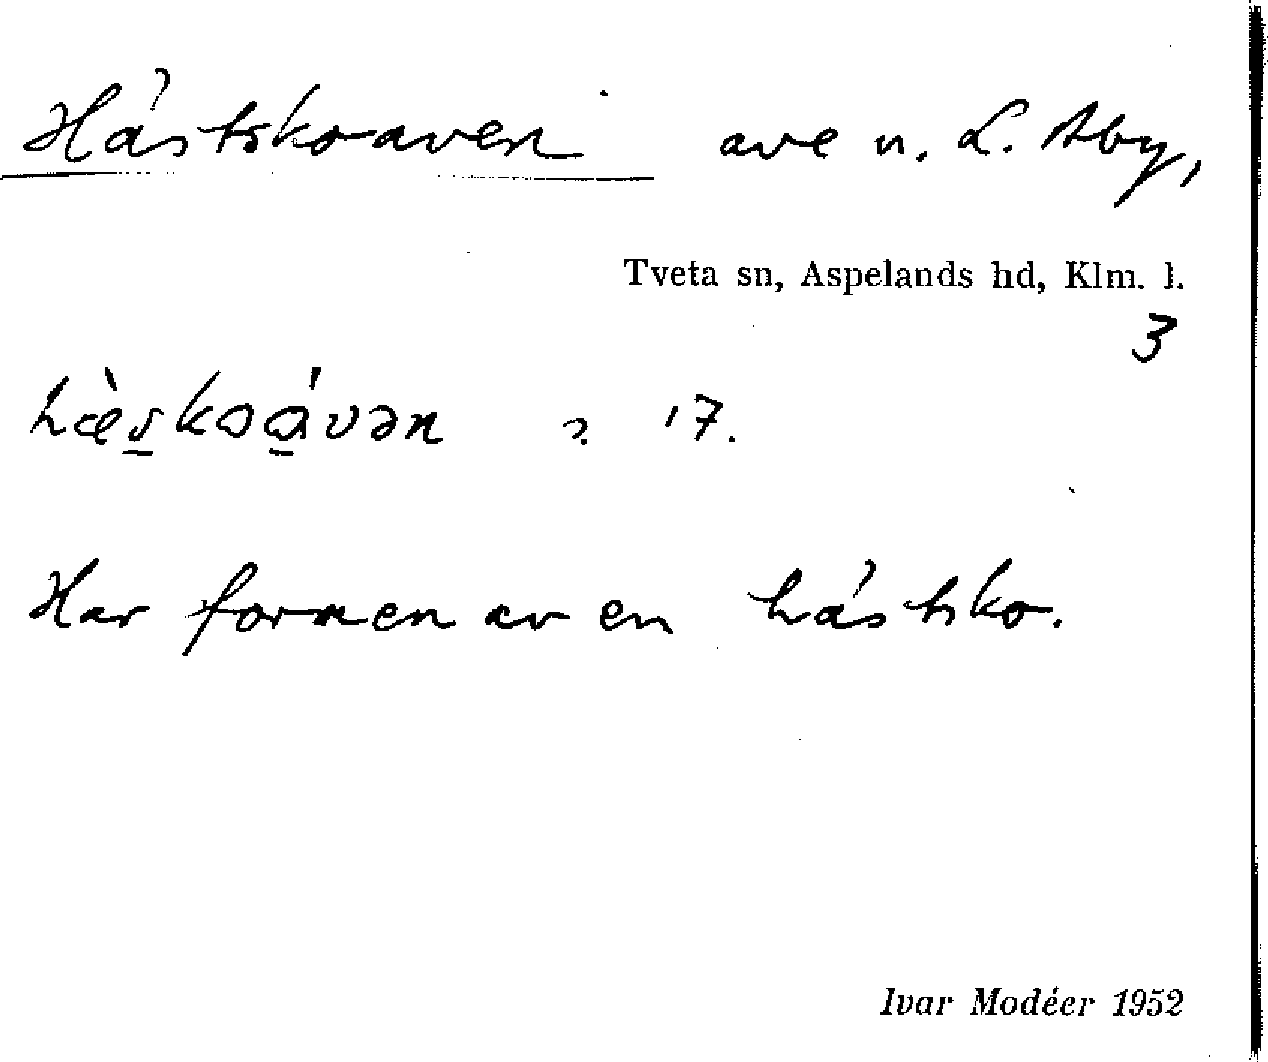 Hästskoaven ave n. L. Åby,
Tveta sn, Aspelands hd, Klm. l.
3
17.
Har formen av en hästsko.
Ivar Modéer 1952